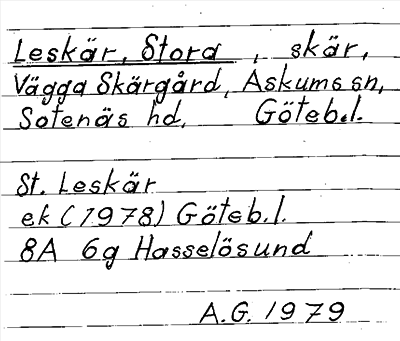 Leskär, Stora , skär,
Vägga Skärgård, Askums sn,
Sotenäs hd, Göteb.l.
St. Leskär
ek (1978) Göteb.l.
8A 6g Hasselösund
A.G. 1979